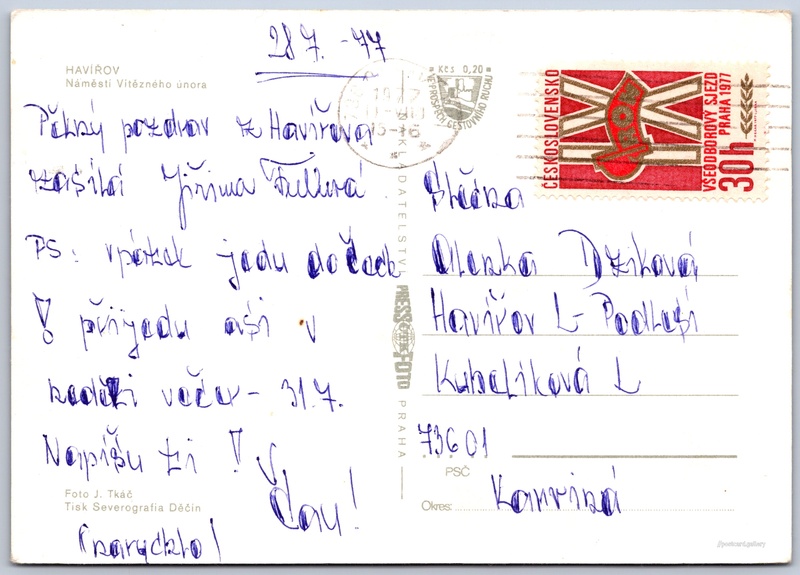 28 7. -77
HAVÍŘOV
Náměstí Vítězného února
Pěkný pozdrav z Havířova
zasílá Jiřina
PS: v pátek jedu do Čech
! přijedu asi v
neděli večer - 31.7.
Napíšu ti !
Čau!
(narychlo)
Foto J. Tkáč
Tisk Severografia Děčín
NAKLADATELSTVÍ
PRESSFOTO
PRAHA
Kčs 0,20
VE PROSPĚCH CESTOVNÍHO RUCHU
ČESKOSLOVENSKO
IX
ROH
VŠEODBOROVÝ SJEZD
PRAHA 1977
30h
Slečna
Alenka Dziková
Havířov L - Podlesí
Kubelíkova
736 01
PSČ
Okres: Karviná
//postcard.gallery